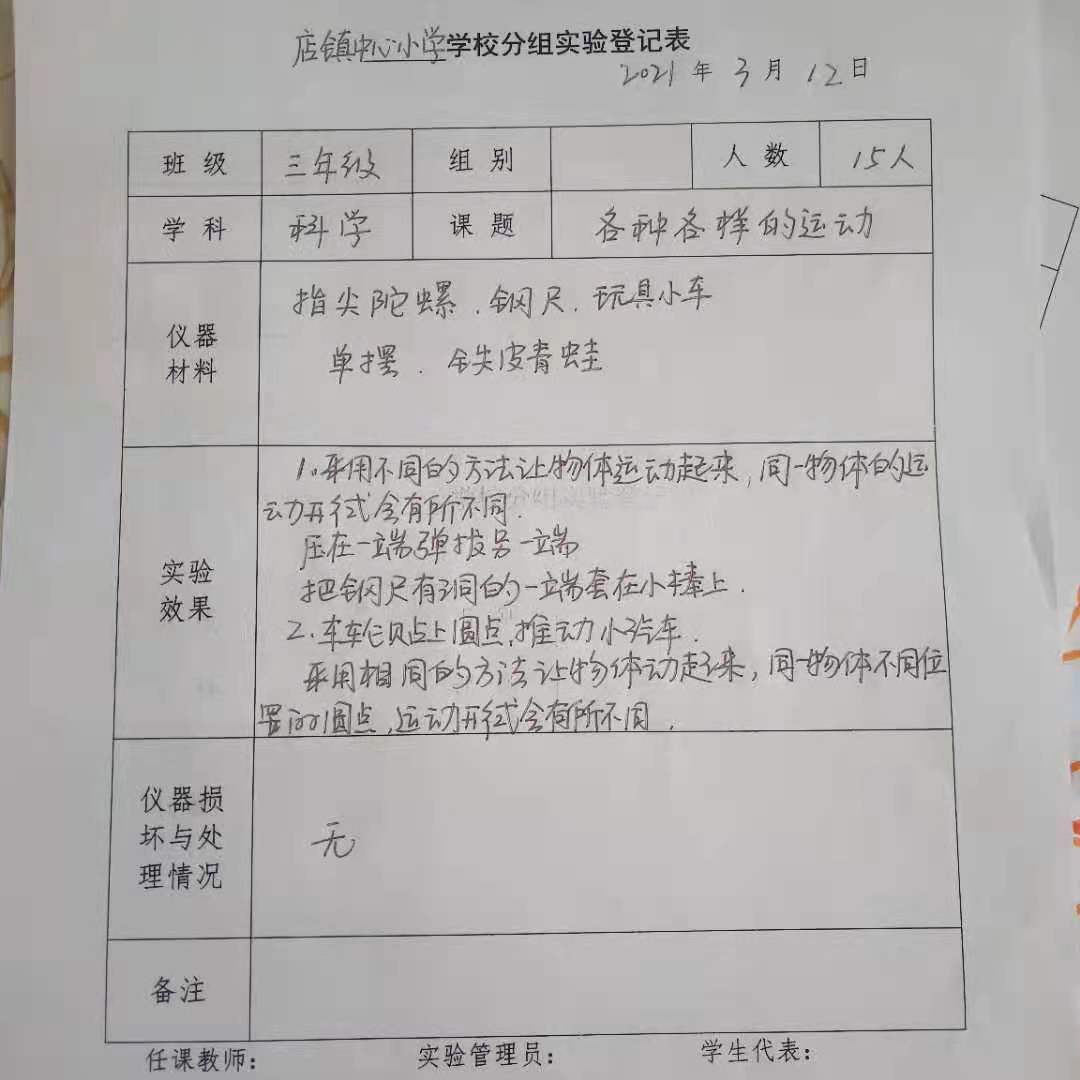 店镇中心小学学校分组实验登记表
2021年3月12日
班级 三年级 组别 人数 15人
学科 科学 课题 各种各样的运动
仪器材料
指尖陀螺、钢尺、玩具小车
单摆、铁皮青蛙
实验效果
1.采用不同的方法让物体运动起来,同一物体的运
动形式会有所不同.
压在一端弹拔另一端
把钢尺有洞的一端套在小棒上.
2.车轮贝占上圆点,推动小汽车.
采用相同的方法让物体动起来,同一物体不同位
置的圆点,运动形式会有所不同.
仪器损坏与处理情况
无
备注
任课教师: 实验管理员: 学生代表: